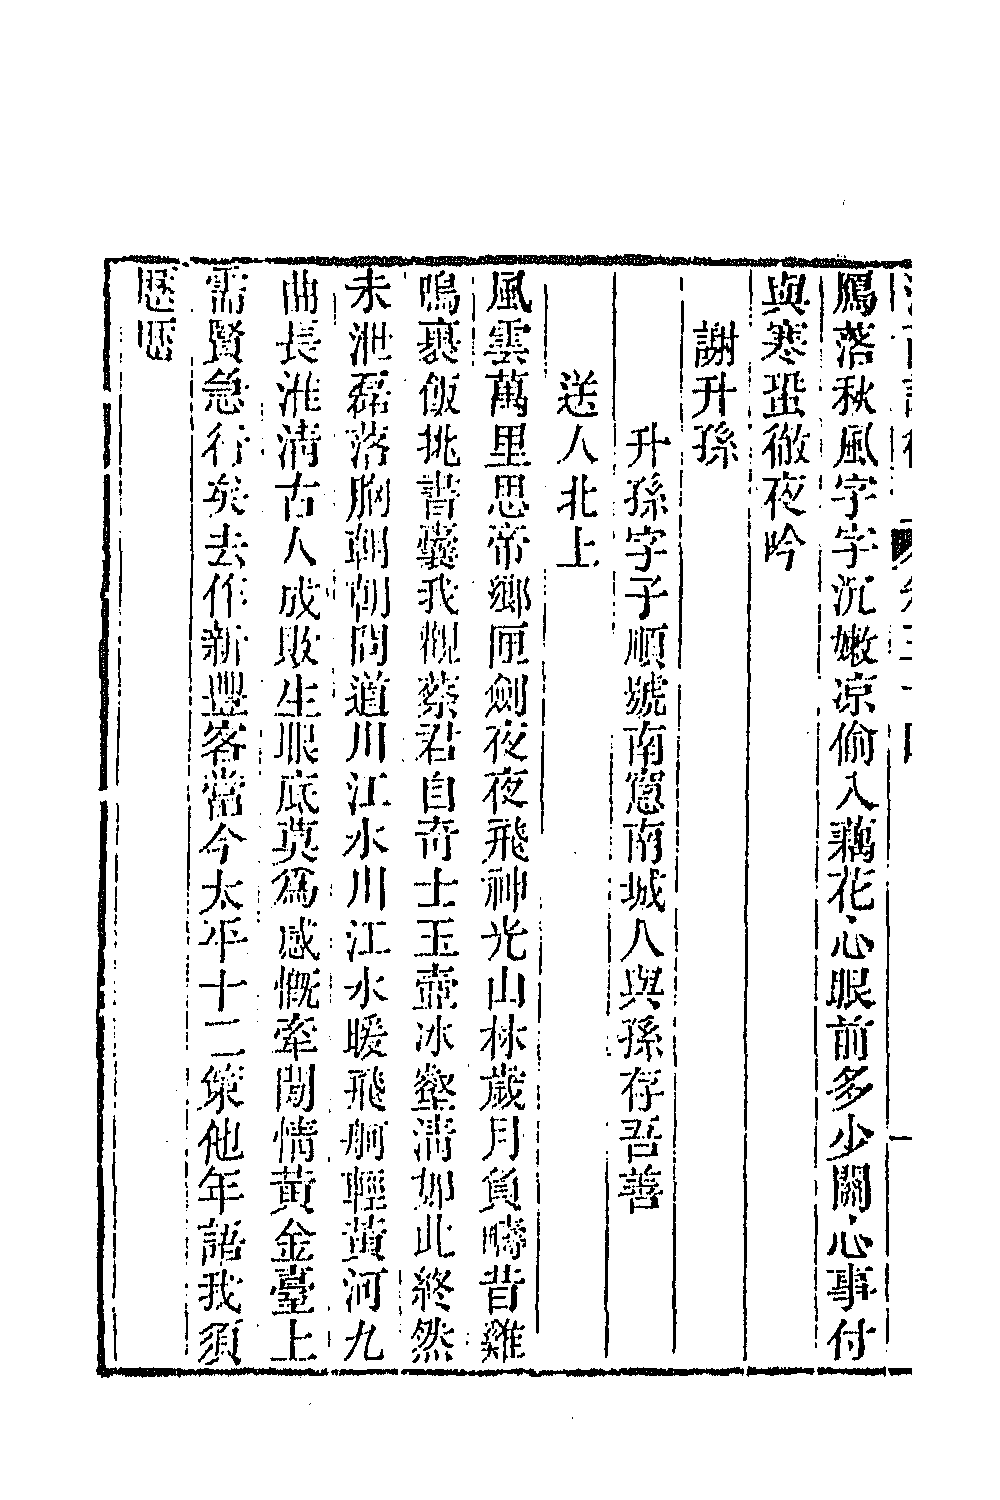 鴈落秋風字字沉嫩凉偷入藕花心眼前多少關心事付
與寒蛩徹夜吟
謝升孫
升孫字子順號南窻南城人與孫存吾善
送人北上
風雲萬里思帝鄉匣劍夜夜飛神光山林歲月負疇昔雞
鳴裹飯挑書囊我觀蔡君自奇士玉壺冰壑淸如此終然
未泄磊落胸朝朝問道川江水川江水暖飛舸輕黃河九
曲長淮淸古人成敗生眼底莫爲感慨牽閒情黃金臺上
需賢急行矣去作新豐客當今太平十二策他年語我須
歷歷